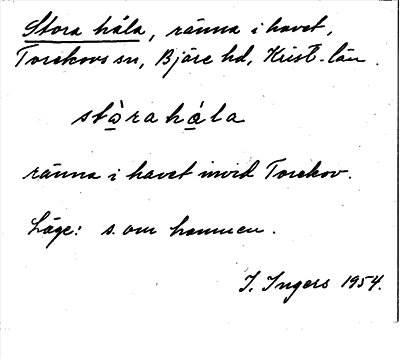 Stora håla, ränna i havet,
Torekovs sn, Bjäre hd, Krist. län.
stǫ̀ra hǫ́la
ränna i havet invid Torekov.
Läge: s. om hamnen.
I. Ingers 1954.